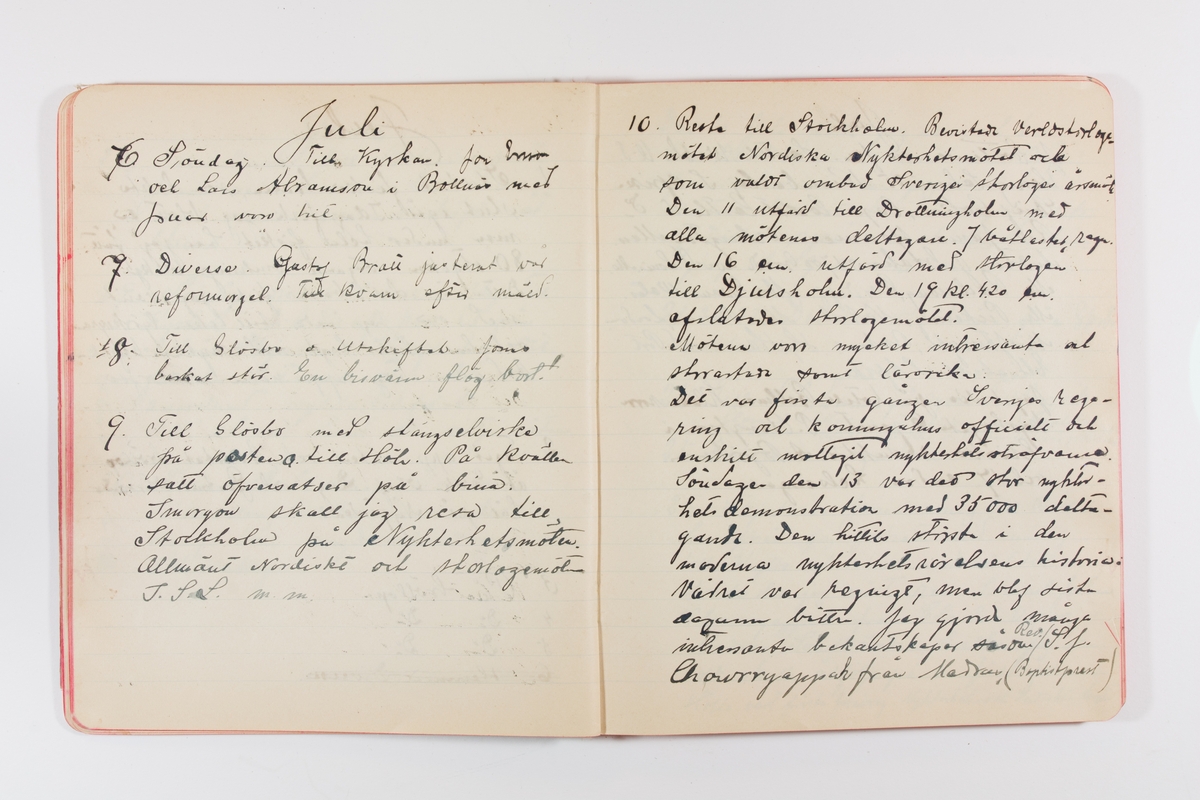 Juli
6 Söndag. Till Kyrkan. for
och Lars Abramson i Bollnäs med
fruar voro till
7. Diverse. Gustaf Bratt justerat vår
reformorgel. Till kvarn efter mäld.
18. Till Glösbo o. Utskiftet. Jons
barkat stör. En bisvärm flög bort.
9. Till Glösbo med stängselvirke
på posten o. till Höle. På kvällen
satt öfversatser på bina.
Imorgon skall jag resa till
Stockholm på Nykterhetsmöten.
Allmänt Nordiskt och storlogemöten
I. S. L. m. m.
10. Resta till Stockholm. Bevistade Verldsstorloge-
mötet Nordiska Nykterhetsmötet och
som valdt ombud Sveriges Storloges årsmöt
Den 11 utfärd till Drottningholm med
alla mötenas deltagare. I hällester regn.
Den 16 em. utfärd med storlogen
till Djursholm. Den 19 kl. 4.20 em.
afslutades storlogemötet.
Mötena voro mycket intressanta och
storartade samt lärorika.
Det var första gången Sveriges rege-
ring och konungahus officielt och
enskilt mottagit nykterhetssträfvarne.
Söndagen den 13 var det stor nykter-
hetsdemonstration med 35000 delta-
gande. Den hittils största i den
moderna nykterhetsrörelsens historia.
Vädret var regnigt, men blef sista
dagarna bättre. Jag gjorde många
intressanta bekantskaper såsom Rev. S. J.
Chowrryappah från Madras, (Baptistprest)